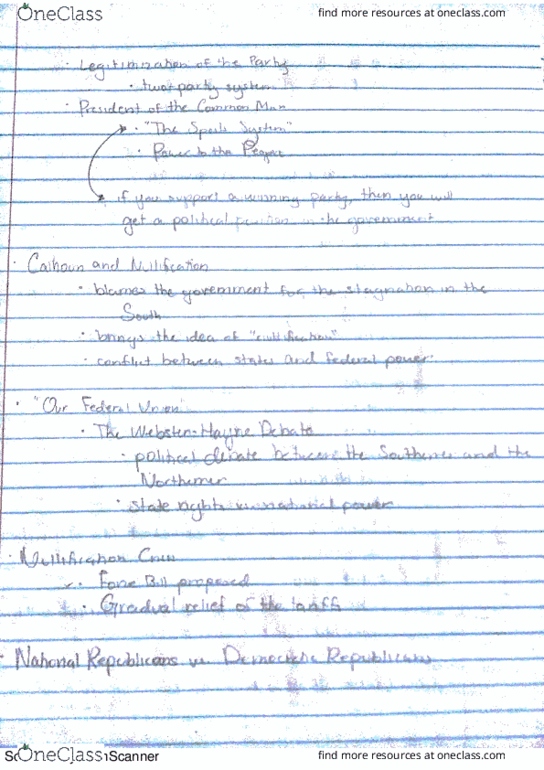 OneClass
find more resources at oneclass.com
· Legitimization of the Party
· two party system
· President of the Common Man
· "The Spoils System"
· Power to the People
if you support a winning party, then you will
get a political position in the government
· Calhoun and Nullification
· blames the government for the stagnation in the
South
· brings the idea of
· conflict between states and federal power
· "Our Federal Union"
· The Webster-Hayne Debate
· political debate between the Southerner and the
Northerner
· state rights vs. national power
· Nullification Crisis
· Force Bill proposed
· Gradual relief of the tariffs
· National Republicans vs. Democratic Republicans
OneClass
Scanner
find more resources at oneclass.com